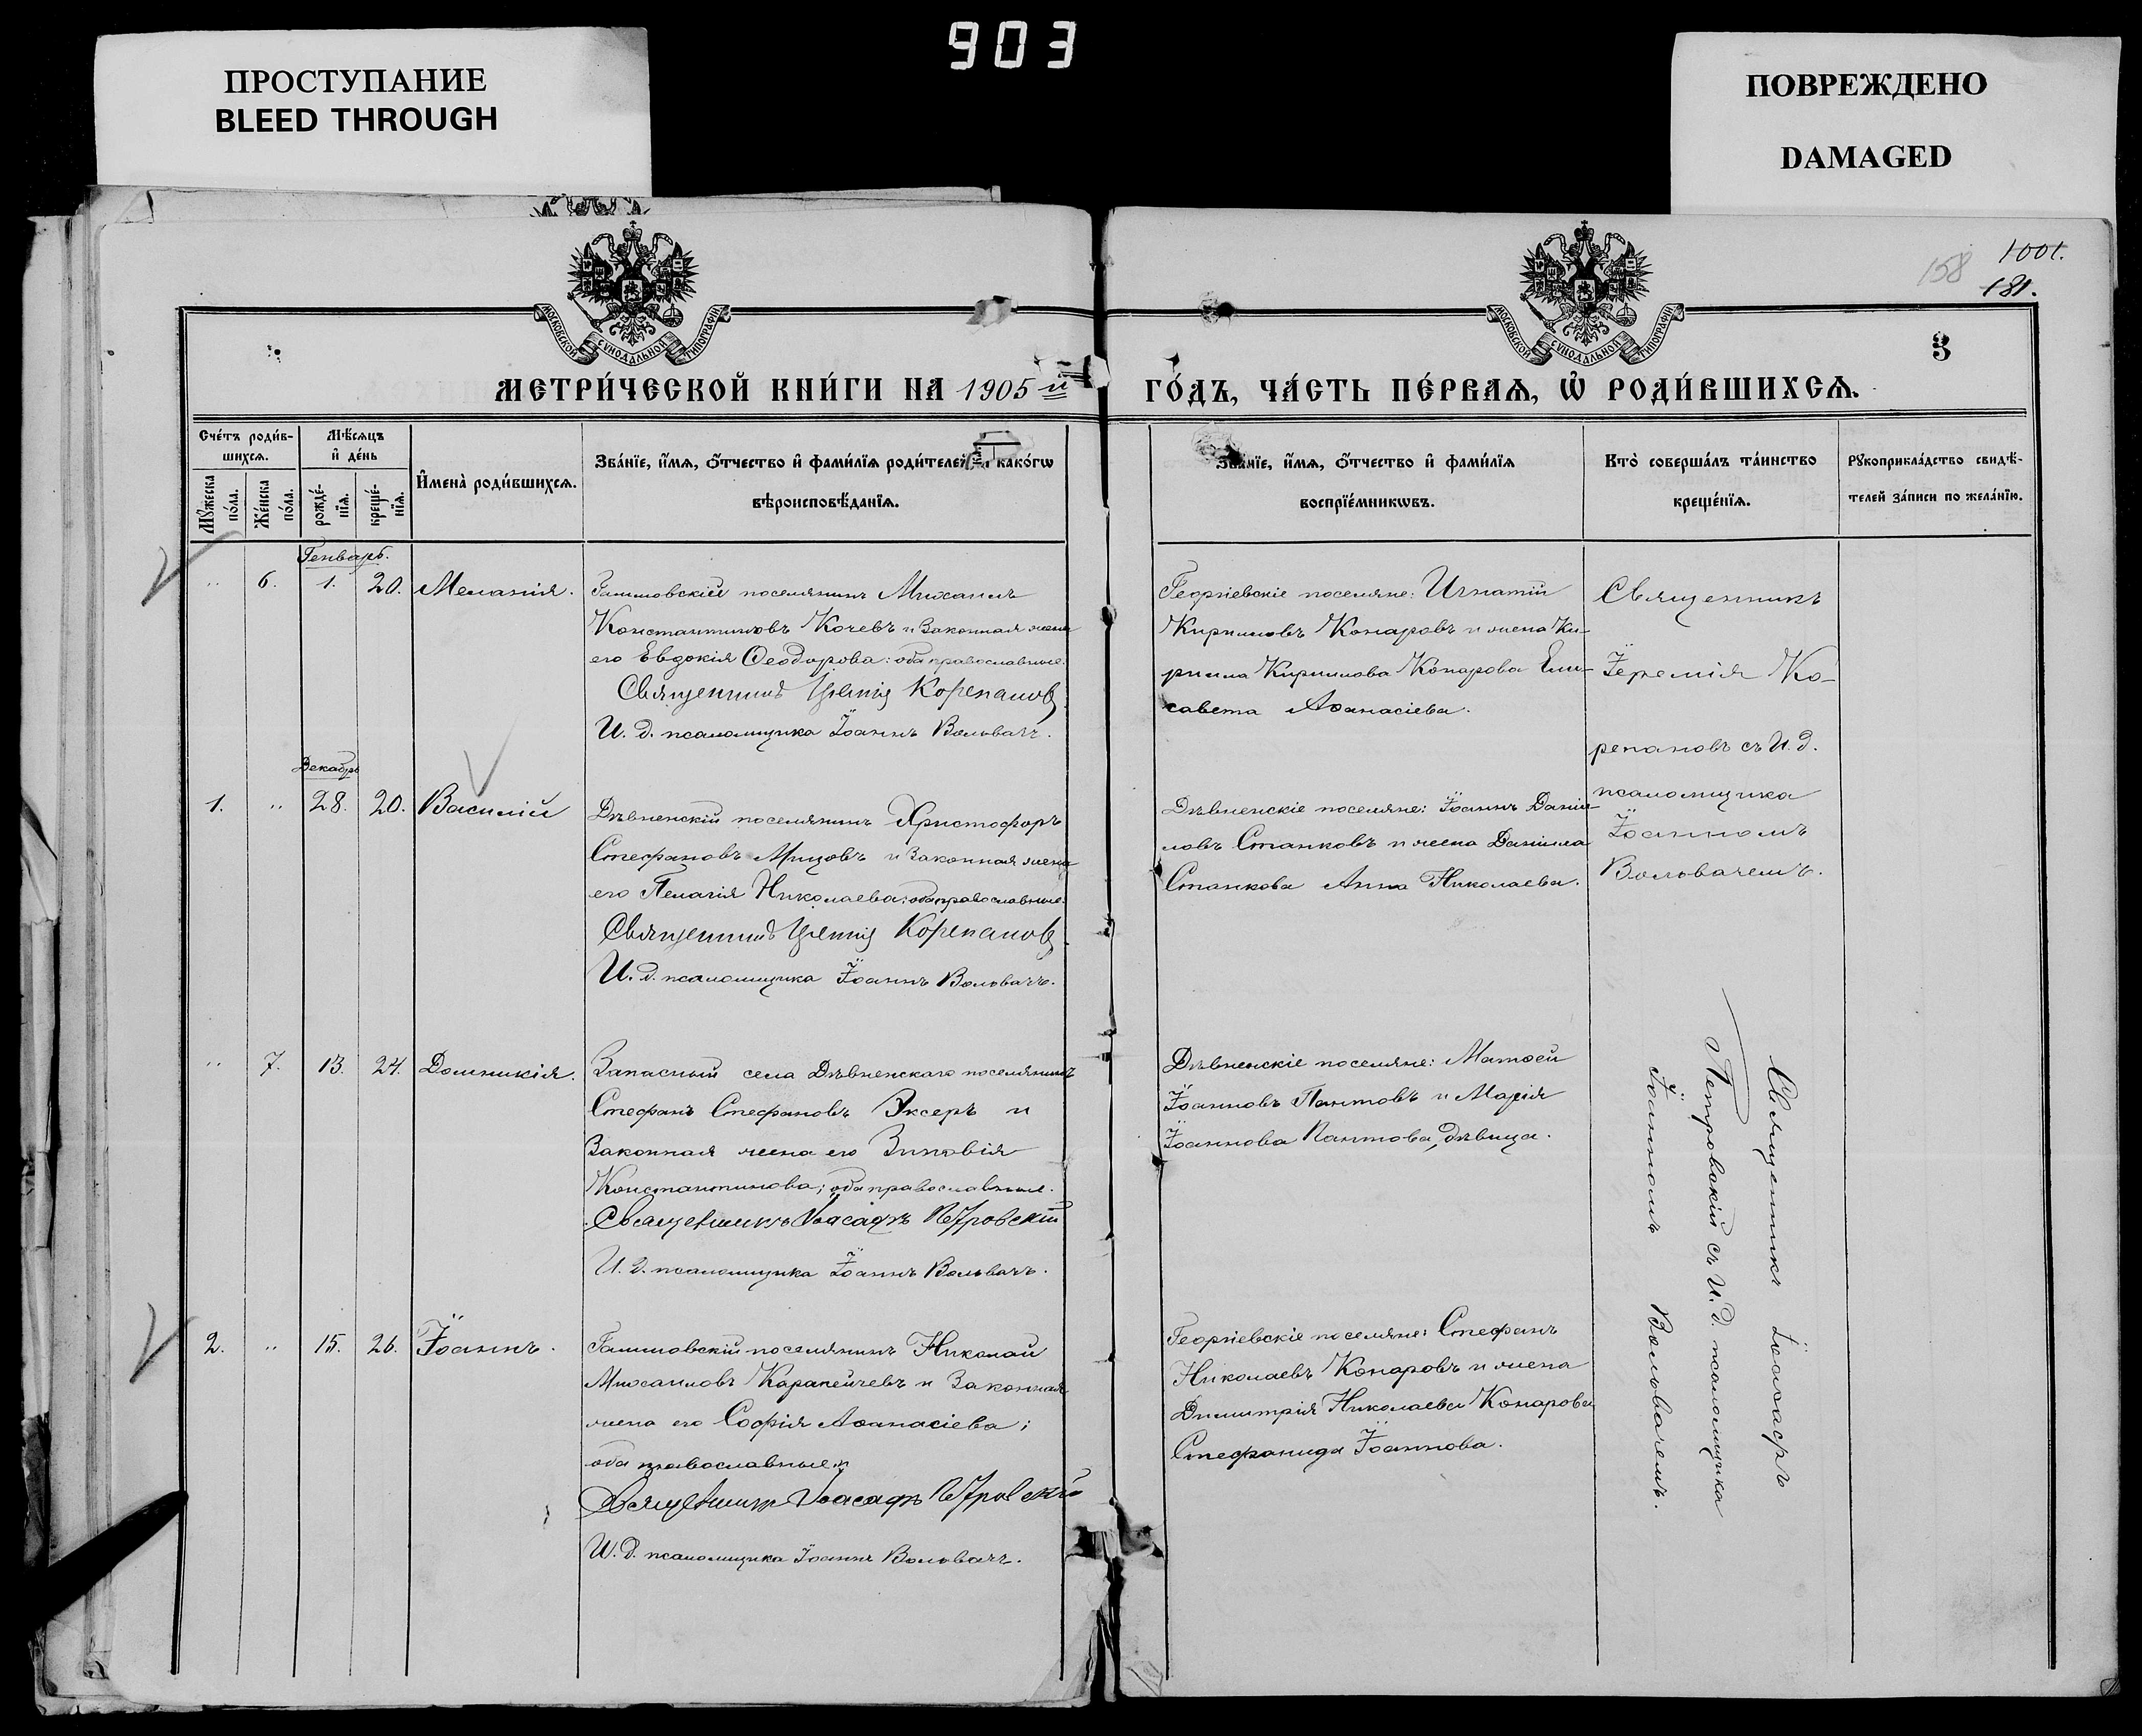 903
ПРОСТУПАНИЕ
BLEED THROUGH
ПОВРЕЖДЕНО
DAMAGED
МОСКОВСКОЙ СѴНОДАЛЬНОЙ ТИПОГРАФІИ
МОСКОВСКОЙ СѴНОДАЛЬНОЙ ТИПОГРАФІИ
158
1001.
181.
З
МЕТРИ́ЧЕСКОЙ КНИ́ГИ НА 1905 й
ГО́ДЪ, ЧА́СТЬ ПЕ́РВАѦ, Ѡ҆ РОДИ́ВШИХСѦ.
Сче́тъ роди́в-
шихсѧ.
Мѣ́сѧцъ
и҆ де́нь
Мꙋ́жеска
по́ла.
Же́нска
по́ла.
рожде́-
нїѧ.
креще́-
нїѧ.
И҆мена̀ роди́вшихсѧ.
Зва́нїе, и҆́мѧ, ѻ҆́тчество и҆ фами́лїѧ роди́телей како́гѡ
вѣроисповѣ́данїѧ.
Зва́нїе, и҆́мѧ, ѻ҆́тчество и҆ фами́лїѧ
воспрїе́мникѡвъ.
Кто̀ соверша́лъ та́инство
креще́нїѧ.
Рꙋкоприкла́дство свидѣ́-
телей за́писи по жела́нїю.
Генварь.
„ 6. 1. 20. Меланія.
Галиловскій поселянинъ Михаилъ
Константиновъ Кочевъ и законная жена
его Евдокія Ѳеодорова: оба православные.
Священникъ Іеремія Корепановъ.
И. д. псаломщика Іоаннъ Вольвачъ.
Георгіевскіе поселяне: Игнатій
Кирилловъ Конаровъ и жена Ки-
рилла Кириллова Конарова Ели-
савета Аѳанасіева.
Священникъ
Іеремія Ко-
репановъ съ И. д.
псаломщика
Іоанномъ
Вольвачемъ.
Декабрь
1. „ 28. 20. Василій
Дѣвненскій поселянинъ Христофоръ
Стефановъ Мрицовъ и законная жена
его Пелагія Николаева; оба православные.
Священникъ Іеремія Корепановъ.
И. д. псаломщика Іоаннъ Вольвачъ.
Дѣвненскіе поселяне: Іоаннъ Даніи-
ловъ Станковъ и жена Даніила
Станкова Анна Николаева.
„ 7. 13. 24. Домникія.
Запасный села Дѣвненскаго поселянинъ
Стефанъ Стефановъ Эксеръ и
законная жена его Зиновія
Константинова; оба православные.
Священникъ Іоасафъ Петровскій
И. д. псаломщика Іоаннъ Вольвачъ.
Дѣвненскіе поселяне: Матѳей
Іоанновъ Пантовъ и Марія
Іоаннова Пантова, дѣвица.
Священникъ Іоасафъ
Петровскій съ И. д. псаломщика
Іоанномъ Вольвачемъ.
2. „ 15. 26. Іоаннъ.
Галиловскій поселянинъ Николай
Михаиловъ Карапейчевъ и законная
жена его Софія Аѳанасіева;
оба православные.
Священникъ Іоасафъ Петровскій
И. д. псаломщика Іоаннъ Вольвачъ.
Георгіевскіе поселяне: Стефанъ
Николаевъ Конаровъ и жена
Димитрія Николаева Конарова
Стефанида Іоаннова.